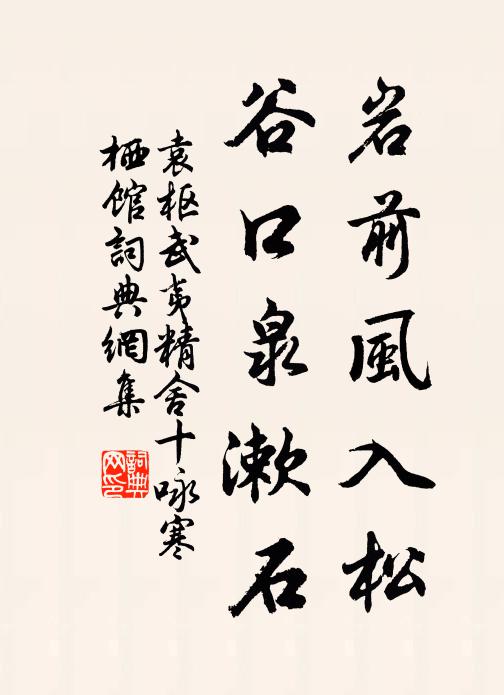 岩前風入松
谷口泉漱石
袁枢武夷精舍十咏寒
栖馆詞典網集
詞典网印